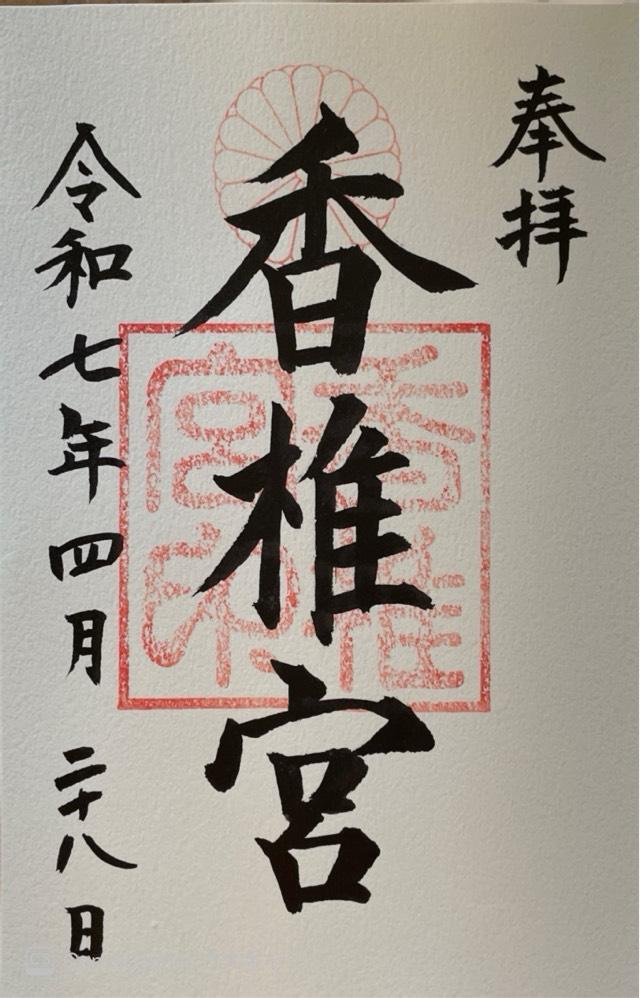 奉拝
香椎宮
香椎宮印
令和七年四月二十八日